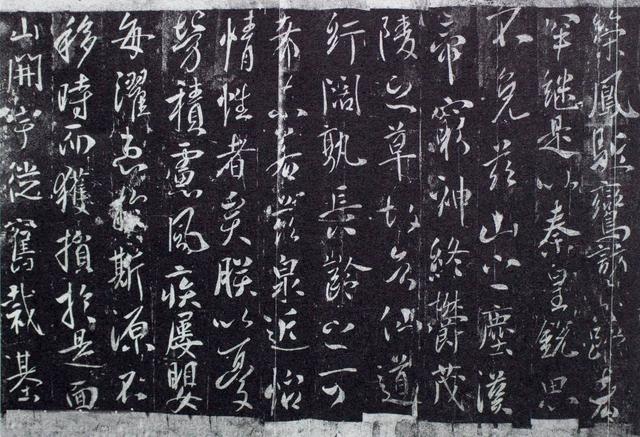 鳳駈鸞者
罕继是以秦皇銳思
不免茲山之塵漢
帝窮神終欝茂
陵之草故知仙道
紆闊孰長齡之可
希未若茲泉近怡
情性者矣朕以憂
勞積慮風疾屢嬰
每濯患於斯源不
移時而獲損於是面
山開宇從舊裁基